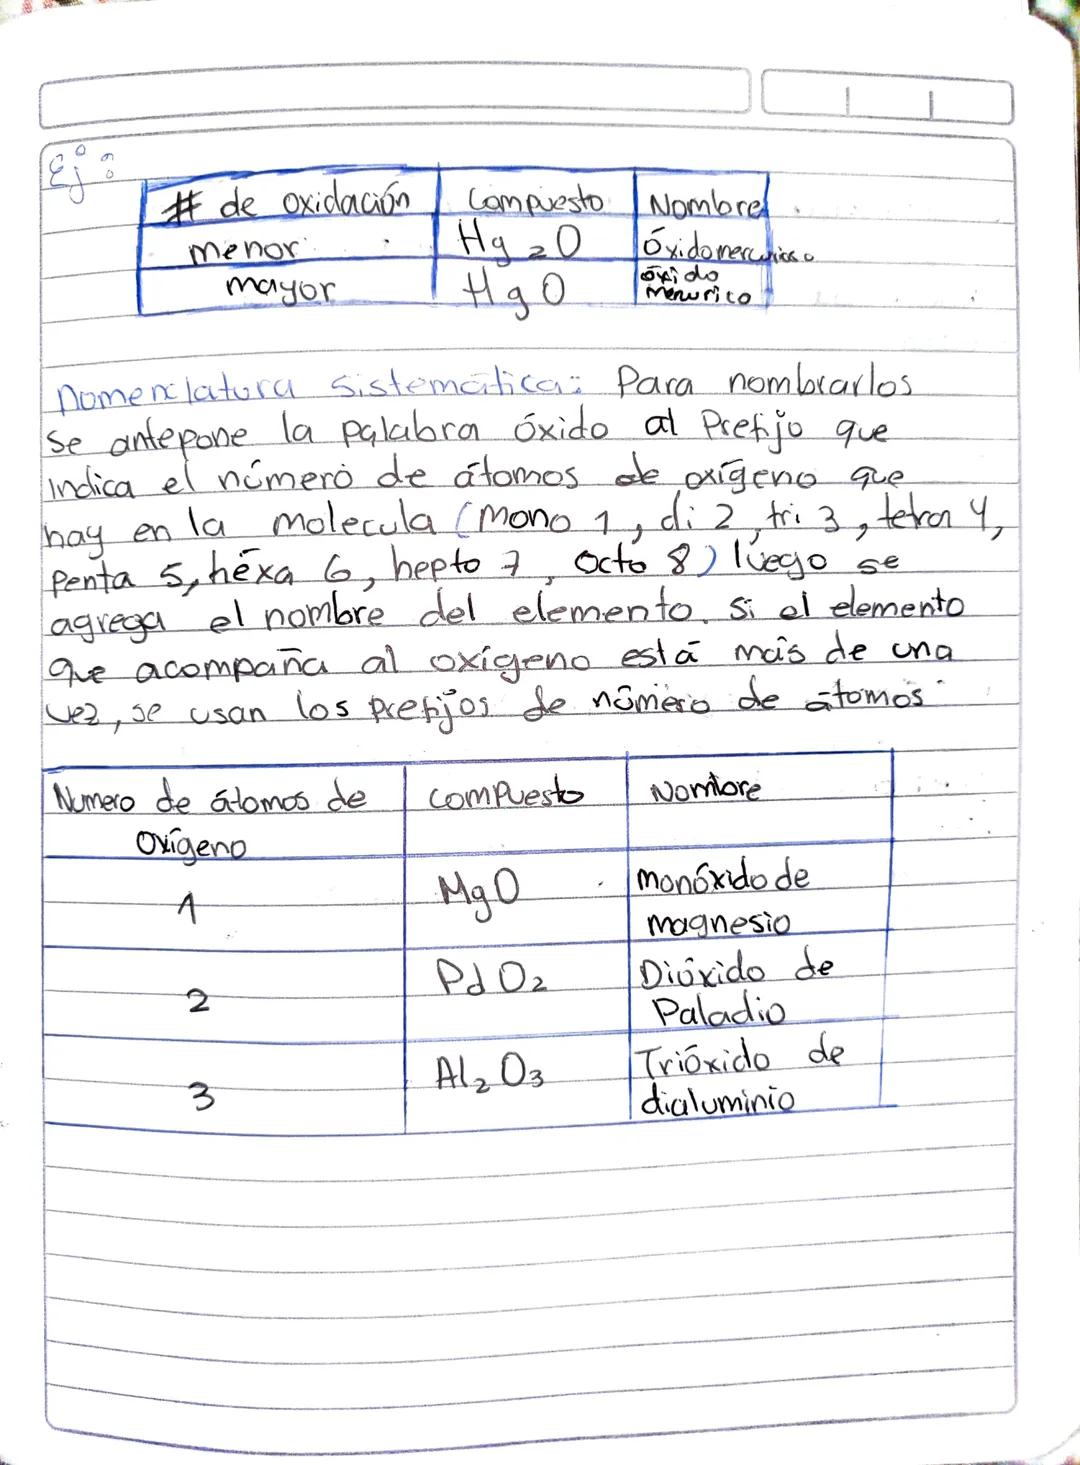 Ej:
# de oxidación Compuesto Nombre
menor Hg2O óxido
mayor HgO óxido
Menurico
Nomenclatura sistemática: Para nombrarlos
se antepone la palabra óxido al Prefijo que
indica el número de átomos de oxígeno que
hay en la molecula (Mono 1, di 2, tri 3, tetra 4,
Penta 5, héxa 6, hepto 7, Octo 8) luego se
agrega el nombre del elemento. Si el elemento
que acompaña al oxígeno está más de una
vez, se usan los prefijos de número de átomos.
Numero de átomos de compuesto Nombre
Oxígeno
1 MgO monóxido de
magnesio
2 PdO2 Dióxido de
Paladio
3 Al2O3 Trióxido de
dialuminio